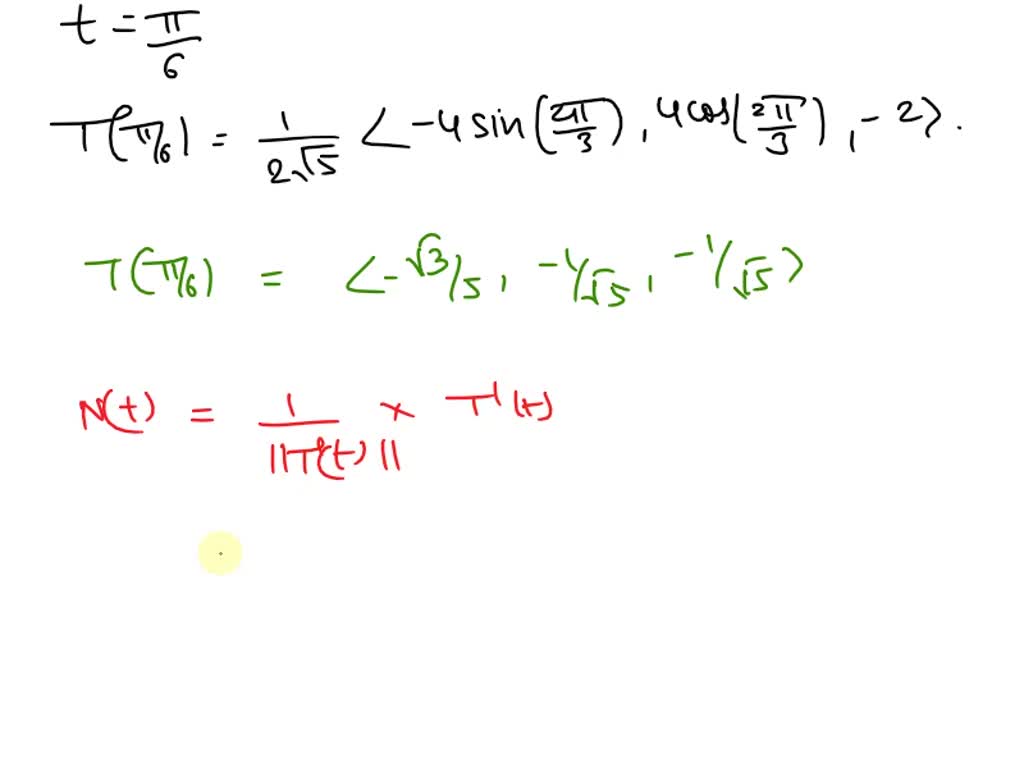 t = π/6
T(π/6) = 1/2√5 < -4 sin(2π/3), 4cos(2π/3), -2>.
T(π/6) = <-√3/5, -1/√5, -1/√5>
N(t) = 1/||T'(t)|| × T'(t)